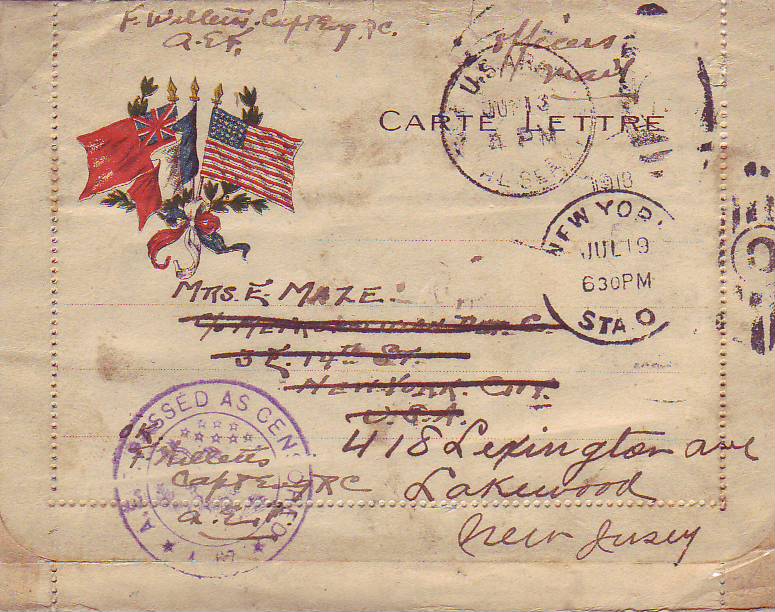 F. Willetts. Capt Eng. R.C.
A.E.F.
Officers
Mail
U.S. AR
JU 13
4 PM
AL SER
1918
CARTE LETTRE
NEW YOR
JUL 19
630PM
STA. O
MRS. E. MAZE.
3 E. 14th ST.
NEW YORK. CITY.
U.S.A.
418 Lexington ave
Lakewood
New Jersey
A.E.F. PASSED AS CENSORED
OK
F. Willetts
Capt Eng RC
A.E.F.